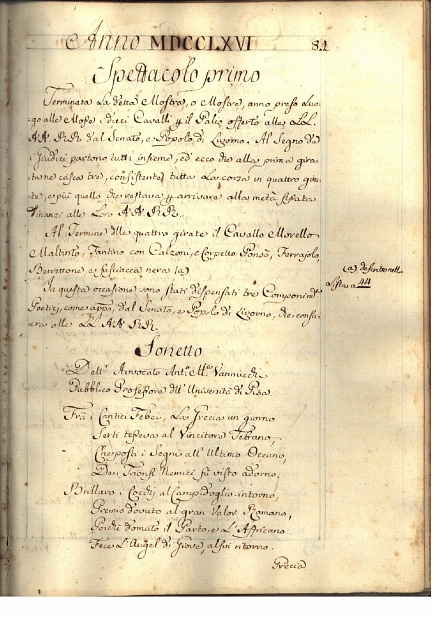 Anno MDCCLXVI 81
Spettacolo primo
Terminata La detta Mostra, o Mostre, anno preso Luo-
go alle Mosse i dieci Cavalli p il Palio offerto alle LL.
AA RR dal Senato, e Popolo di Livorno. Al Segno dei
Giudici partono tutti insieme, ed ecco che alla prima gira-
ta ne casca tre, consistente tutta La corsa in quattro gira-
te, e più quello che restava p arrivare alla metà fissata
dinanzi alle Loro AA RR.
Al Termine delle quattro girate il Cavallo Morello
Maltinto, Fantino con Calzoni, e Corpetto Ponsò, Ferrajolo,
Berrettone, e fusciacca nera (a)
(a) descritto nella
Lista a 44
In questa occasione sono stati dispensati tre Componimti
Poetici, come appo, dal Senato, e Popolo di Livorno, che consa-
cra alle LL AA RR.
Sonetto
Dell' Avvocato Ant. Ma Vannucchi
Pubblico Professore dell' Università di Pisa
Trà i Cantici Febei, La Grecia un giorno
Serti tesseva al Vincitore Tebano,
Che posti i Segni all' Ultimo Oceano,
Dei Trionfi Nemici fù visto adorno,
Brillaro i Cocchj al Campidoglio intorno,
Premio dovuto al gran Valor Romano,
Poichè domato il Parto, e L'Affricano
Fece L'Augel di Giove, alfin ritorno.
Grecia